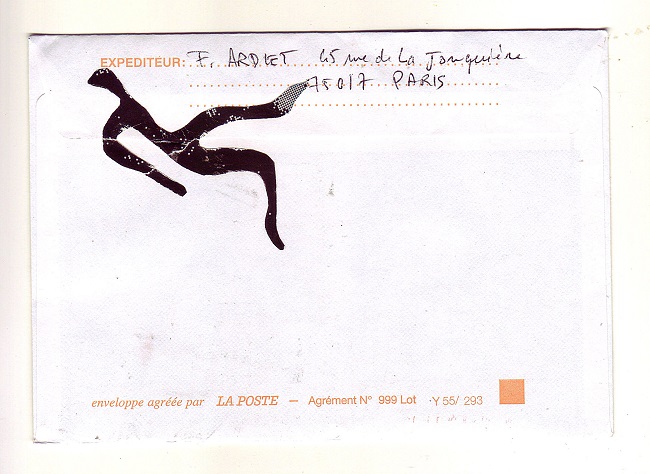 EXPEDITEUR: F. ARDIET 45 rue de La Jonquière
75017 PARIS
enveloppe agréée par LA POSTE — Agrément N° 999 Lot Y 55/ 293